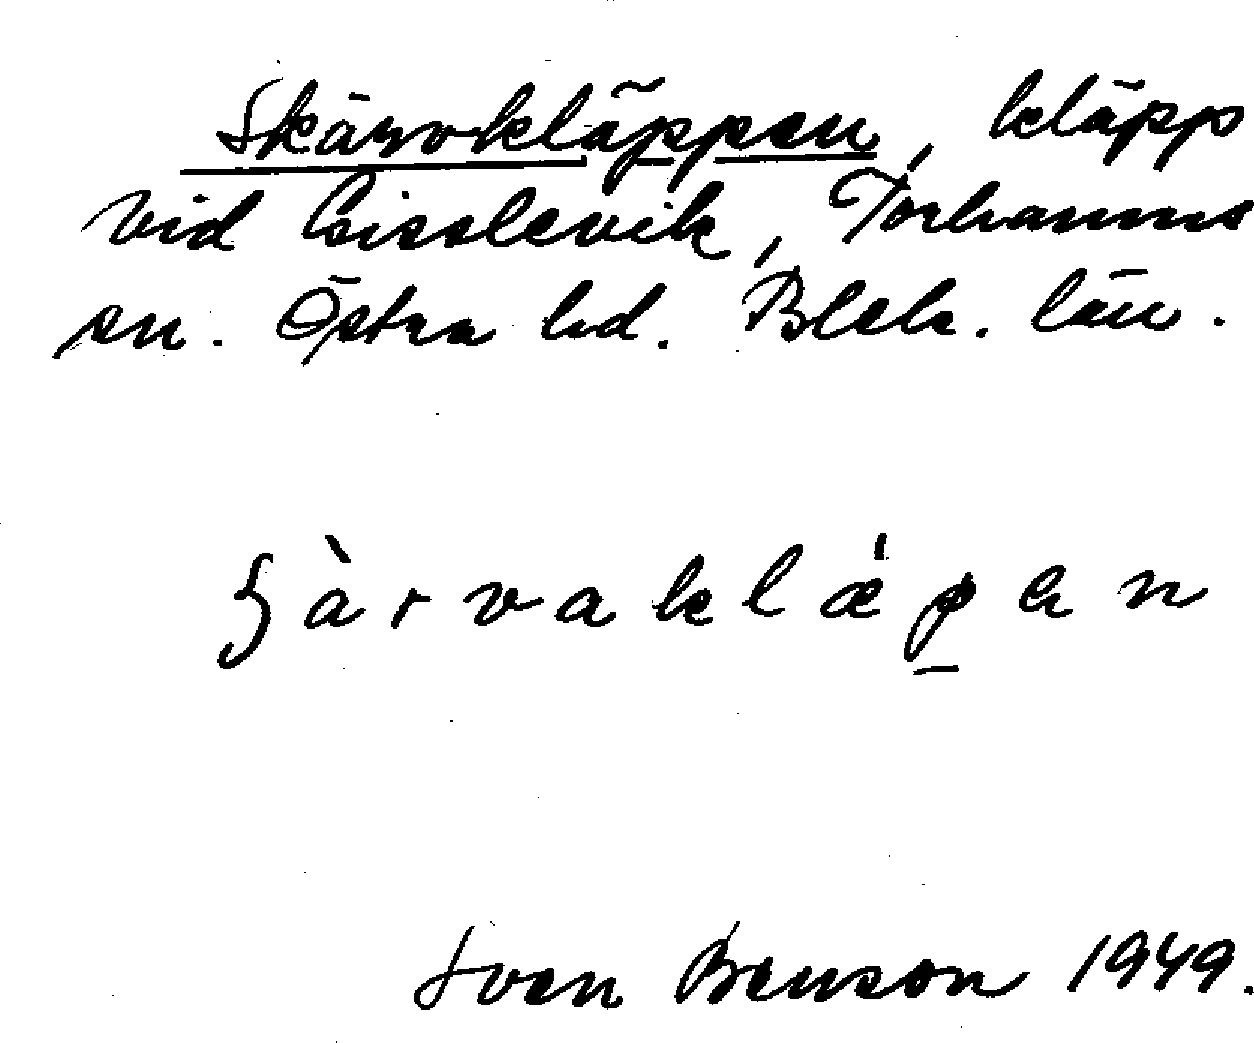 Skärvokläppen, kläpp
vid Gisslevik, Torhamns
sn. Östra hd. Blek. län.
ʃ à r v a k l ǽ p̠ ə n
Sven Benson 1949.